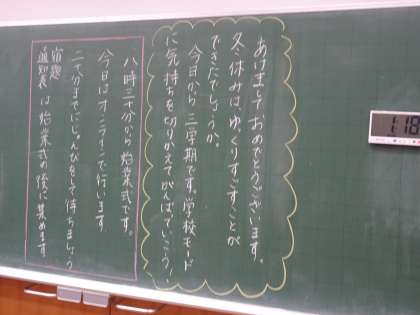 あけましておめでとうございます。
冬休みはゆっくりすごすことが
できたでしょうか。
今日から三学期です。学校モード
に気持ちを切りかえてがんばていこう！
八時三十分から始業式です。
今日はオンラインで行います
二十分までにじゅんびをして待ちましょう
宿題
通知表 は始業式の後に集めます。
1:18